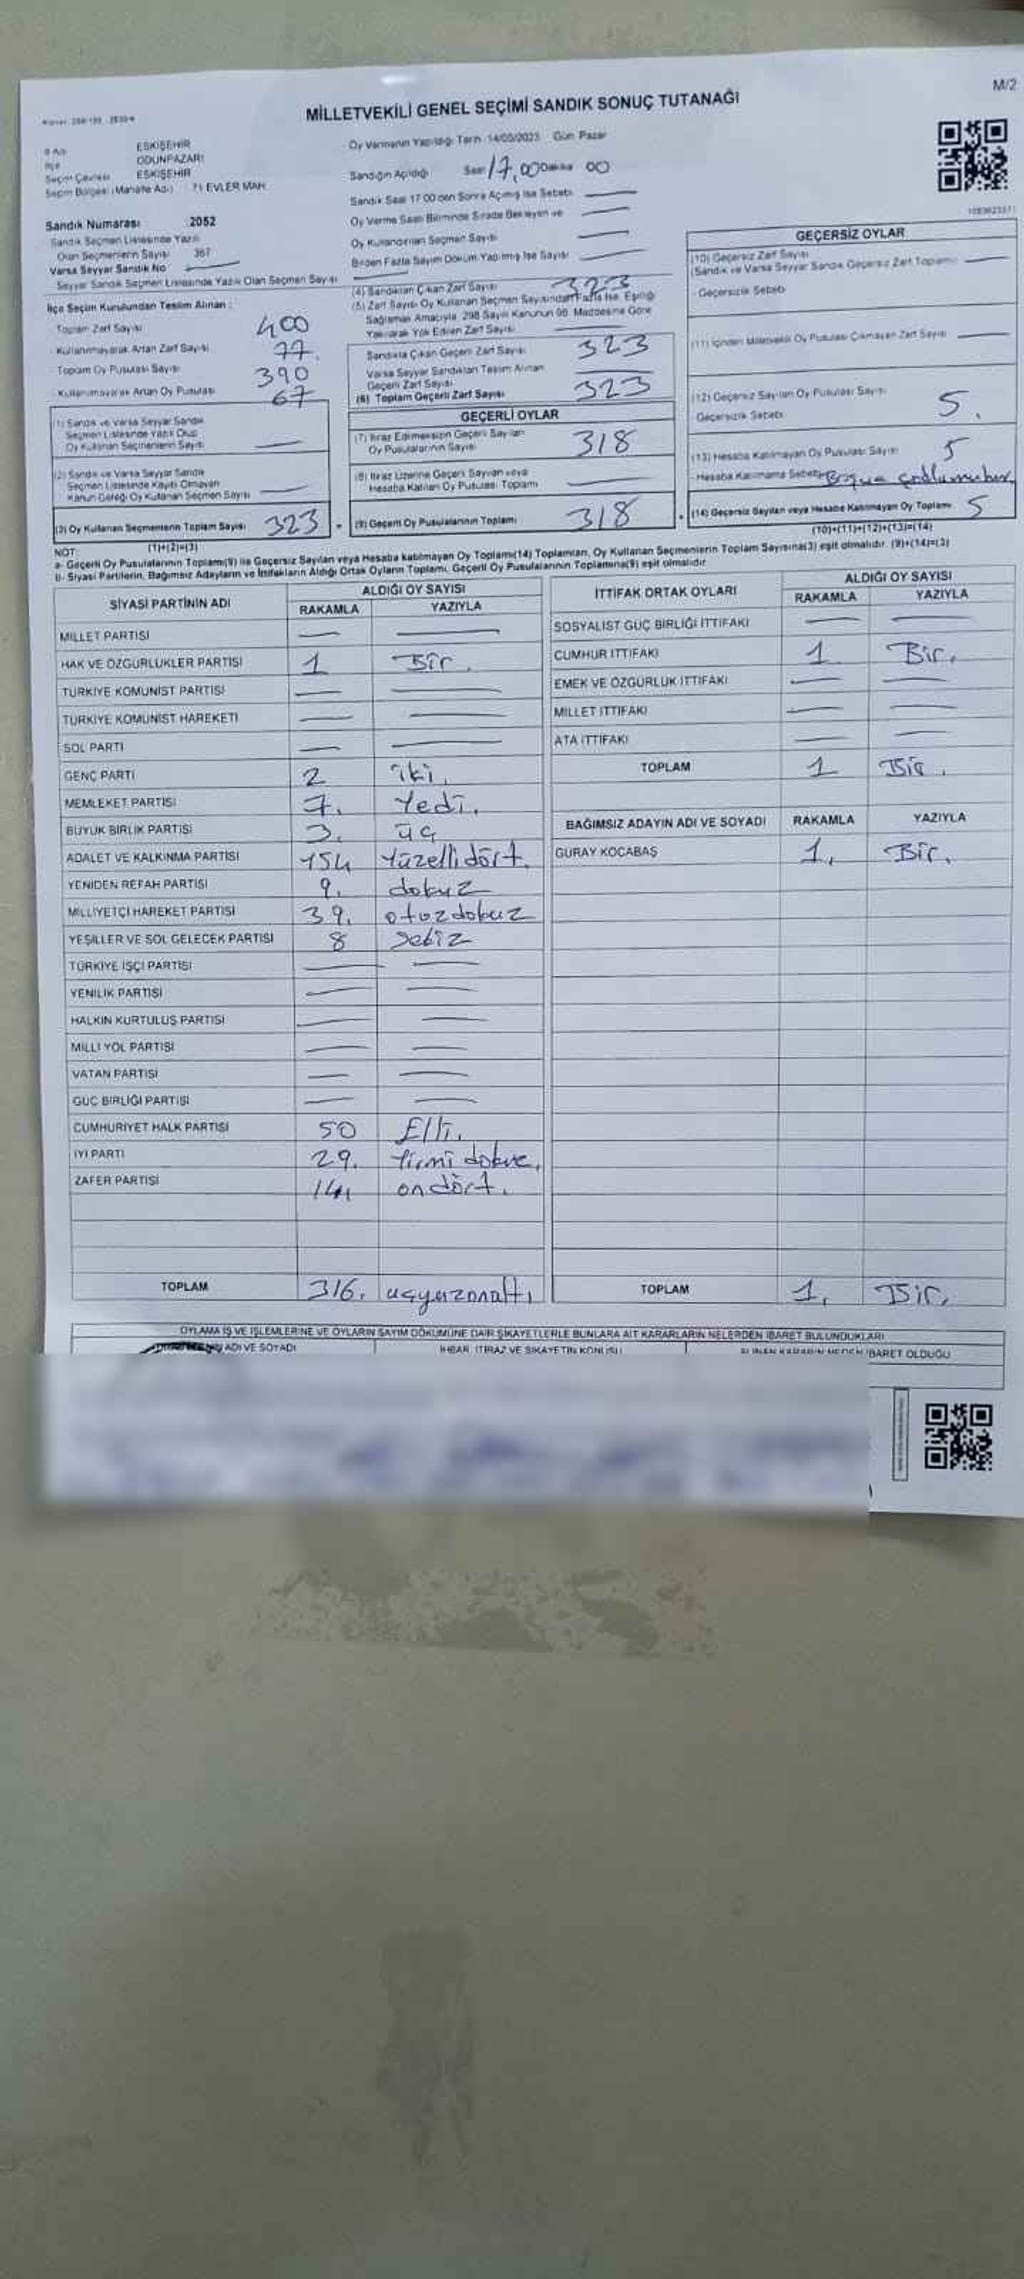 M/2
MİLLETVEKİLİ GENEL SEÇİMİ SANDIK SONUÇ TUTANAĞI
İl Adı ESKİŞEHİR
İlçe ODUNPAZARI
Seçim Çevresi ESKİŞEHİR
Seçim Bölgesi (Mahalle Adı) 71 EVLER MAH.
Oy Vermenin Yapıldığı Tarih 14/05/2023 Gün Pazar
Sandığın Açıldığı Saat 17.00 Dakika 00
Sandık Saat 17.00'den Sonra Açılmış İse Sebebi
Oy Verme Saati Bitiminde Sırada Bekleyen ve
Oy Kullandırılan Seçmen Sayısı
Birden Fazla Sayım Döküm Yapılmış İse Sayısı
Sandık Numarası 2052
Sandık Seçmen Listesinde Yazılı
Olan Seçmenlerin Sayısı 367
Varsa Seyyar Sandık No
Seyyar Sandık Seçmen Listesinde Yazılı Olan Seçmen Sayısı
İlçe Seçim Kurulundan Teslim Alınan :
Toplam Zarf Sayısı 400
Kullanılmayarak Artan Zarf Sayısı 77.
Toplam Oy Pusulası Sayısı 390
Kullanılmayarak Artan Oy Pusulası 67
(1) Sandık ve Varsa Seyyar Sandık
Seçmen Listesinde Yazılı Olup
Oy Kullanan Seçmenlerin Sayısı
(2) Sandık ve Varsa Seyyar Sandık
Seçmen Listesinde Kayıtlı Olmayan
Kanun Gereği Oy Kullanan Seçmen Sayısı
(3) Oy Kullanan Seçmenlerin Toplam Sayısı 323
(1)+(2)=(3)
(4) Sandıktan Çıkan Zarf Sayısı 323
(5) Zarf Sayısı Oy Kullanan Seçmen Sayısından Fazla İse, Eşitliği
Sağlamak Amacıyla, 298 Sayılı Kanunun 98. Maddesine Göre
Yakılarak Yok Edilen Zarf Sayısı
Sandıkta Çıkan Geçerli Zarf Sayısı 323
Varsa Seyyar Sandıktan Teslim Alınan
Geçerli Zarf Sayısı
(6) Toplam Geçerli Zarf Sayısı 323
GEÇERLİ OYLAR
(7) İtiraz Edilmeksizin Geçerli Sayılan
Oy Pusulalarının Sayısı 318
(8) İtiraz Üzerine Geçerli Sayılan veya
Hesaba Katılan Oy Pusulası Toplamı
(9) Geçerli Oy Pusulalarının Toplamı 318
GEÇERSİZ OYLAR
(10) Geçersiz Zarf Sayısı
(Sandık ve Varsa Seyyar Sandık Geçersiz Zarf Toplamı)
Geçersizlik Sebebi
(11) İçinden Milletvekili Oy Pusulası Çıkmayan Zarf Sayısı
(12) Geçersiz Sayılan Oy Pusulası Sayısı 5.
Geçersizlik Sebebi
(13) Hesaba Katılmayan Oy Pusulası Sayısı 5
Hesaba Katılmama Sebebi
(14) Geçersiz Sayılan veya Hesaba Katılmayan Oy Toplamı 5
(10)+(11)+(12)+(13)=(14)
NOT:
a- Geçerli Oy Pusulalarının Toplamı(9) ile Geçersiz Sayılan veya Hesaba katılmayan Oy Toplamı(14) Toplamları, Oy Kullanan Seçmenlerin Toplam Sayısına(3) eşit olmalıdır. (9)+(14)=(3)
b- Siyasi Partilerin, Bağımsız Adayların ve İttifakların Aldığı Ortak Oyların Toplamı, Geçerli Oy Pusulalarının Toplamına(9) eşit olmalıdır.
SİYASİ PARTİNİN ADI ALDIĞI OY SAYISI
RAKAMLA YAZIYLA
MİLLET PARTİSİ
HAK VE ÖZGÜRLÜKLER PARTİSİ 1 Bir.
TÜRKİYE KOMÜNİST PARTİSİ
TÜRKİYE KOMÜNİST HAREKETİ
SOL PARTİ
GENÇ PARTİ 2 iki.
MEMLEKET PARTİSİ 7. Yedi.
BÜYÜK BİRLİK PARTİSİ 3. üç
ADALET VE KALKINMA PARTİSİ 154 Yüzellidört.
YENİDEN REFAH PARTİSİ 9. dokuz
MİLLİYETÇİ HAREKET PARTİSİ 39. otuzdokuz
YEŞİLLER VE SOL GELECEK PARTİSİ 8 Sekiz
TÜRKİYE İŞÇİ PARTİSİ
YENİLİK PARTİSİ
HALKIN KURTULUŞ PARTİSİ
MİLLİ YOL PARTİSİ
VATAN PARTİSİ
GÜÇ BİRLİĞİ PARTİSİ
CUMHURİYET HALK PARTİSİ 50 Elli.
İYİ PARTİ 29.
ZAFER PARTİSİ 14. ondört.
TOPLAM 316. üçyüzonaltı
İTTİFAK ORTAK OYLARI ALDIĞI OY SAYISI
RAKAMLA YAZIYLA
SOSYALİST GÜÇ BİRLİĞİ İTTİFAKI
CUMHUR İTTİFAKI 1 Bir.
EMEK VE ÖZGÜRLÜK İTTİFAKI
MİLLET İTTİFAKI
ATA İTTİFAKI
TOPLAM 1 Bir.
BAĞIMSIZ ADAYIN ADI VE SOYADI RAKAMLA YAZIYLA
GÜRAY KOCABAŞ 1. Bir.
TOPLAM 1. Bir.
OYLAMA İŞ VE İŞLEMLERİNE VE OYLARIN SAYIM DÖKÜMÜNE DAİR ŞİKAYETLERLE BUNLARA AİT KARARLARIN NELERDEN İBARET BULUNDUKLARI
ADI VE SOYADI İHBAR, İTİRAZ VE ŞİKAYETİN KONUSU ALINAN KARARIN NEDEN İBARET OLDUĞU